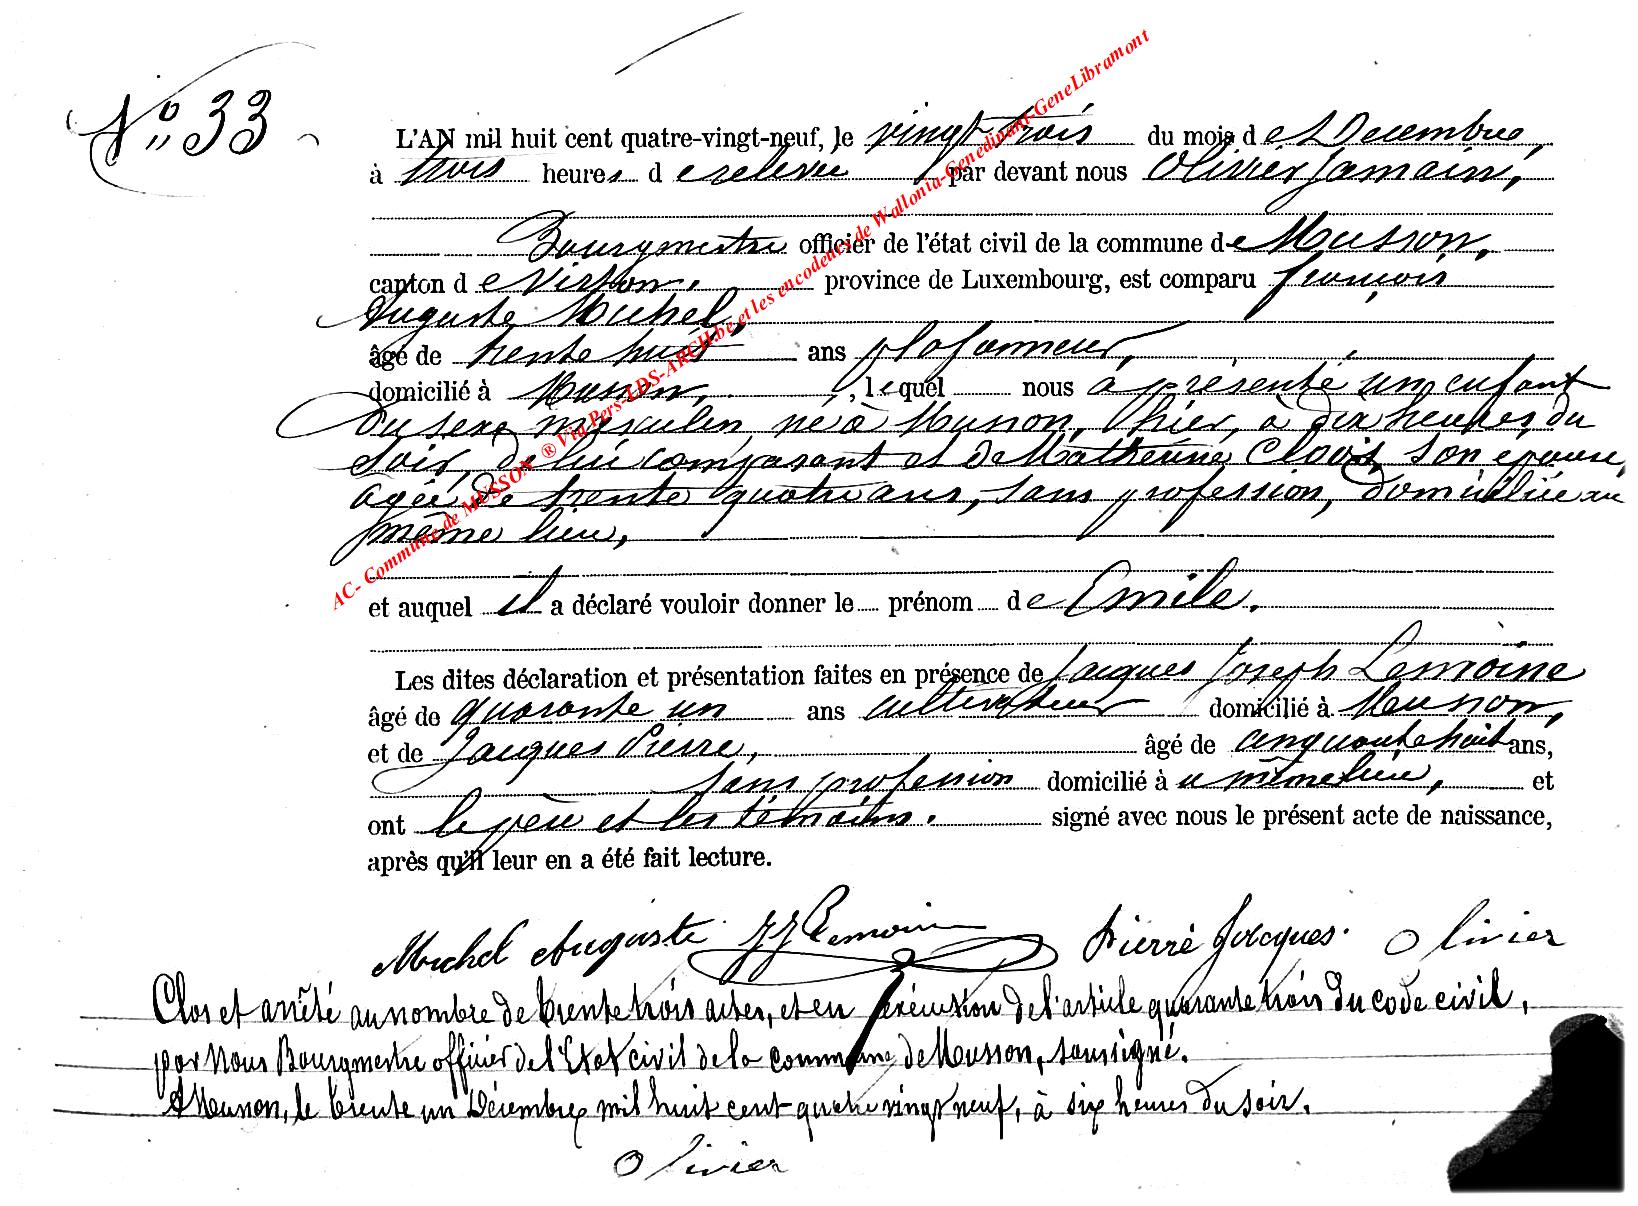 N° 33
L'AN mil huit cent quatre-vingt-neuf, le vingt trois du mois d e Décembre,
à trois heures d e relevée par devant nous Olivier Jamain,
Bourgmestre officier de l'état civil de la commune de Musson,
canton d e Virton. province de Luxembourg, est comparu françois
Auguste Michel,
âgé de trente huit ans plafonneur,
domicilié à Musson, , lequel nous a présenté un enfant
du sexe masculin, né à Musson, hier, à dix heures du
soir, de lui comparant et de Catherine Clovis, son épouse,
agée de trente quatre ans, sans profession, domiciliée au
même lieu,
et auquel il a déclaré vouloir donner le prénom de Emile.
Les dites déclaration et présentation faites en présence de Jacques Joseph Lemoine
âgé de quarante un ans cultivateur domicilié à Musson,
et de Jacques Pierre, âgé de cinquante huit ans,
sans profession domicilié à u même lieu, et
ont le père et les témoins. signé avec nous le présent acte de naissance,
après qu'il leur en a été fait lecture.
Michel Auguste JJ Lemoine Pierre Jacques. Olivier
Clos et arrêté au nombre de trente trois actes, et en exécution de l'article quarante trois du code civil,
par Nous Bourgmestre officier de l'Etat civil de la commune de Musson, soussigné.
A Musson, le trente un Décembre mil huit cent quatre vingt neuf, à six heures du soir.
Olivier
AC- Commune de MUSSON ® Via Pers-LDS-ARCH.be et les encodeurs de Wallonia-Genedinant-GeneLibramont